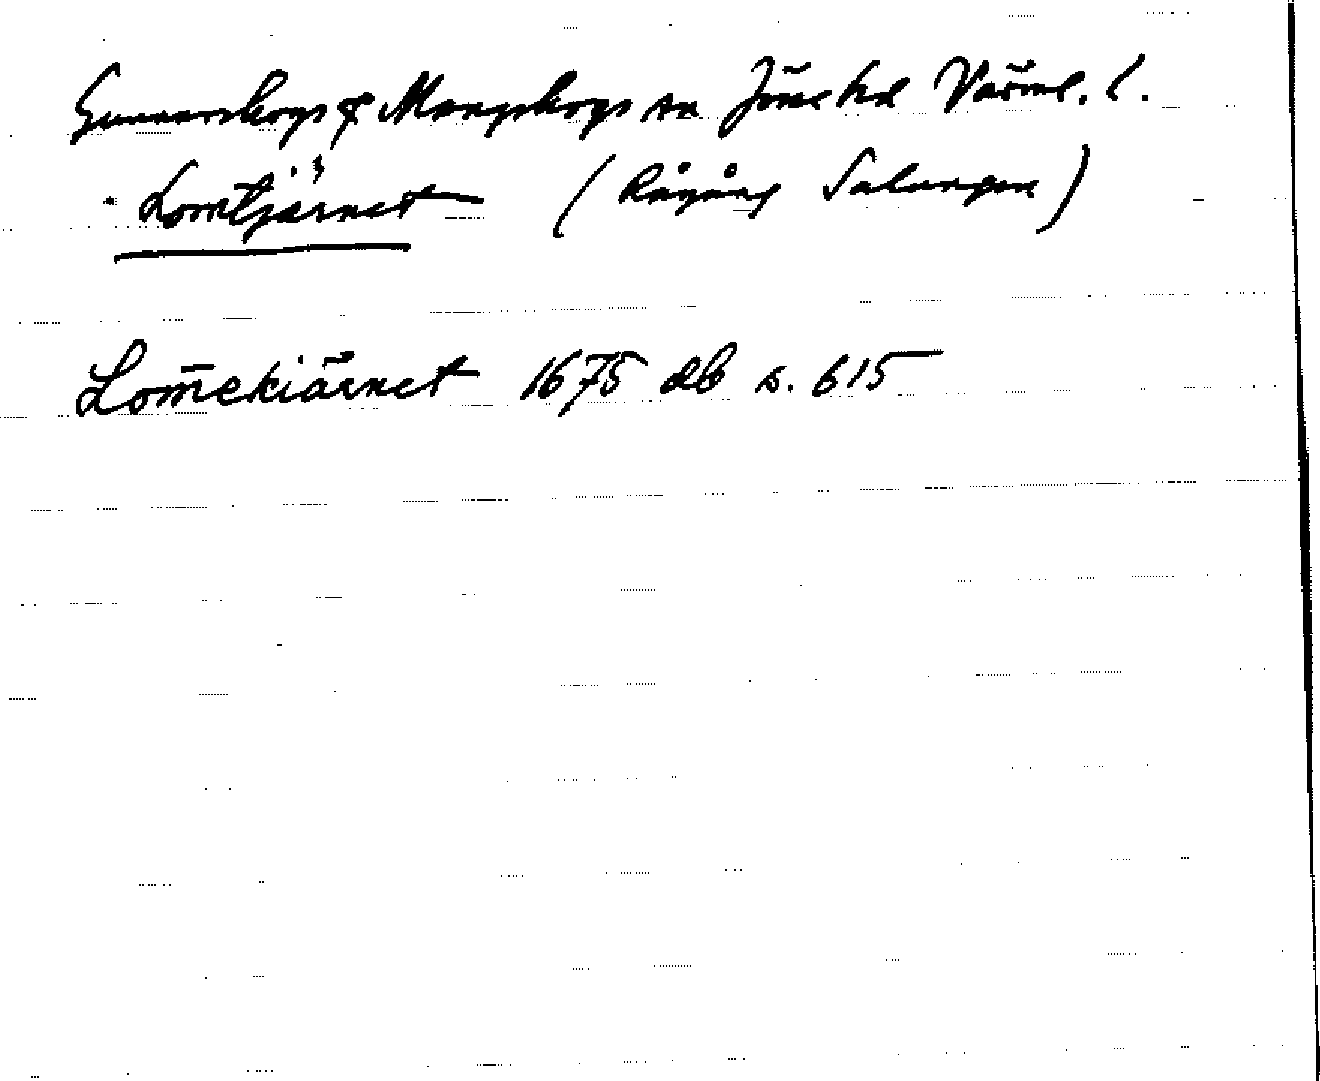 Gunnarskogs & Mangskogs sn Jösse hd Värml. l.
Lomtjärnet (Rågång Salungen)
Lom̄ekiärnet 1675 db s. 615